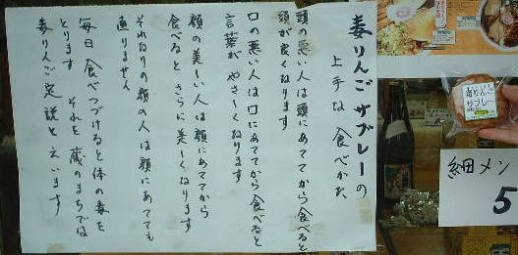 毒りんごサブレーの
上手な食べかた
頭の悪い人は頭にあててから食べると
頭が良くなります
口の悪い人は口にあててから食べると
言葉がやさしくなります
顔の美しい人は顔にあててから
食べるとさらに美しくなります
それなりの顔の人は顔にあてても
直りません
毎日食べつづけると体の毒を
とります それを蔵のまちでは
毒りんご定説と云います
毒りんご
サブレー
細メン
5